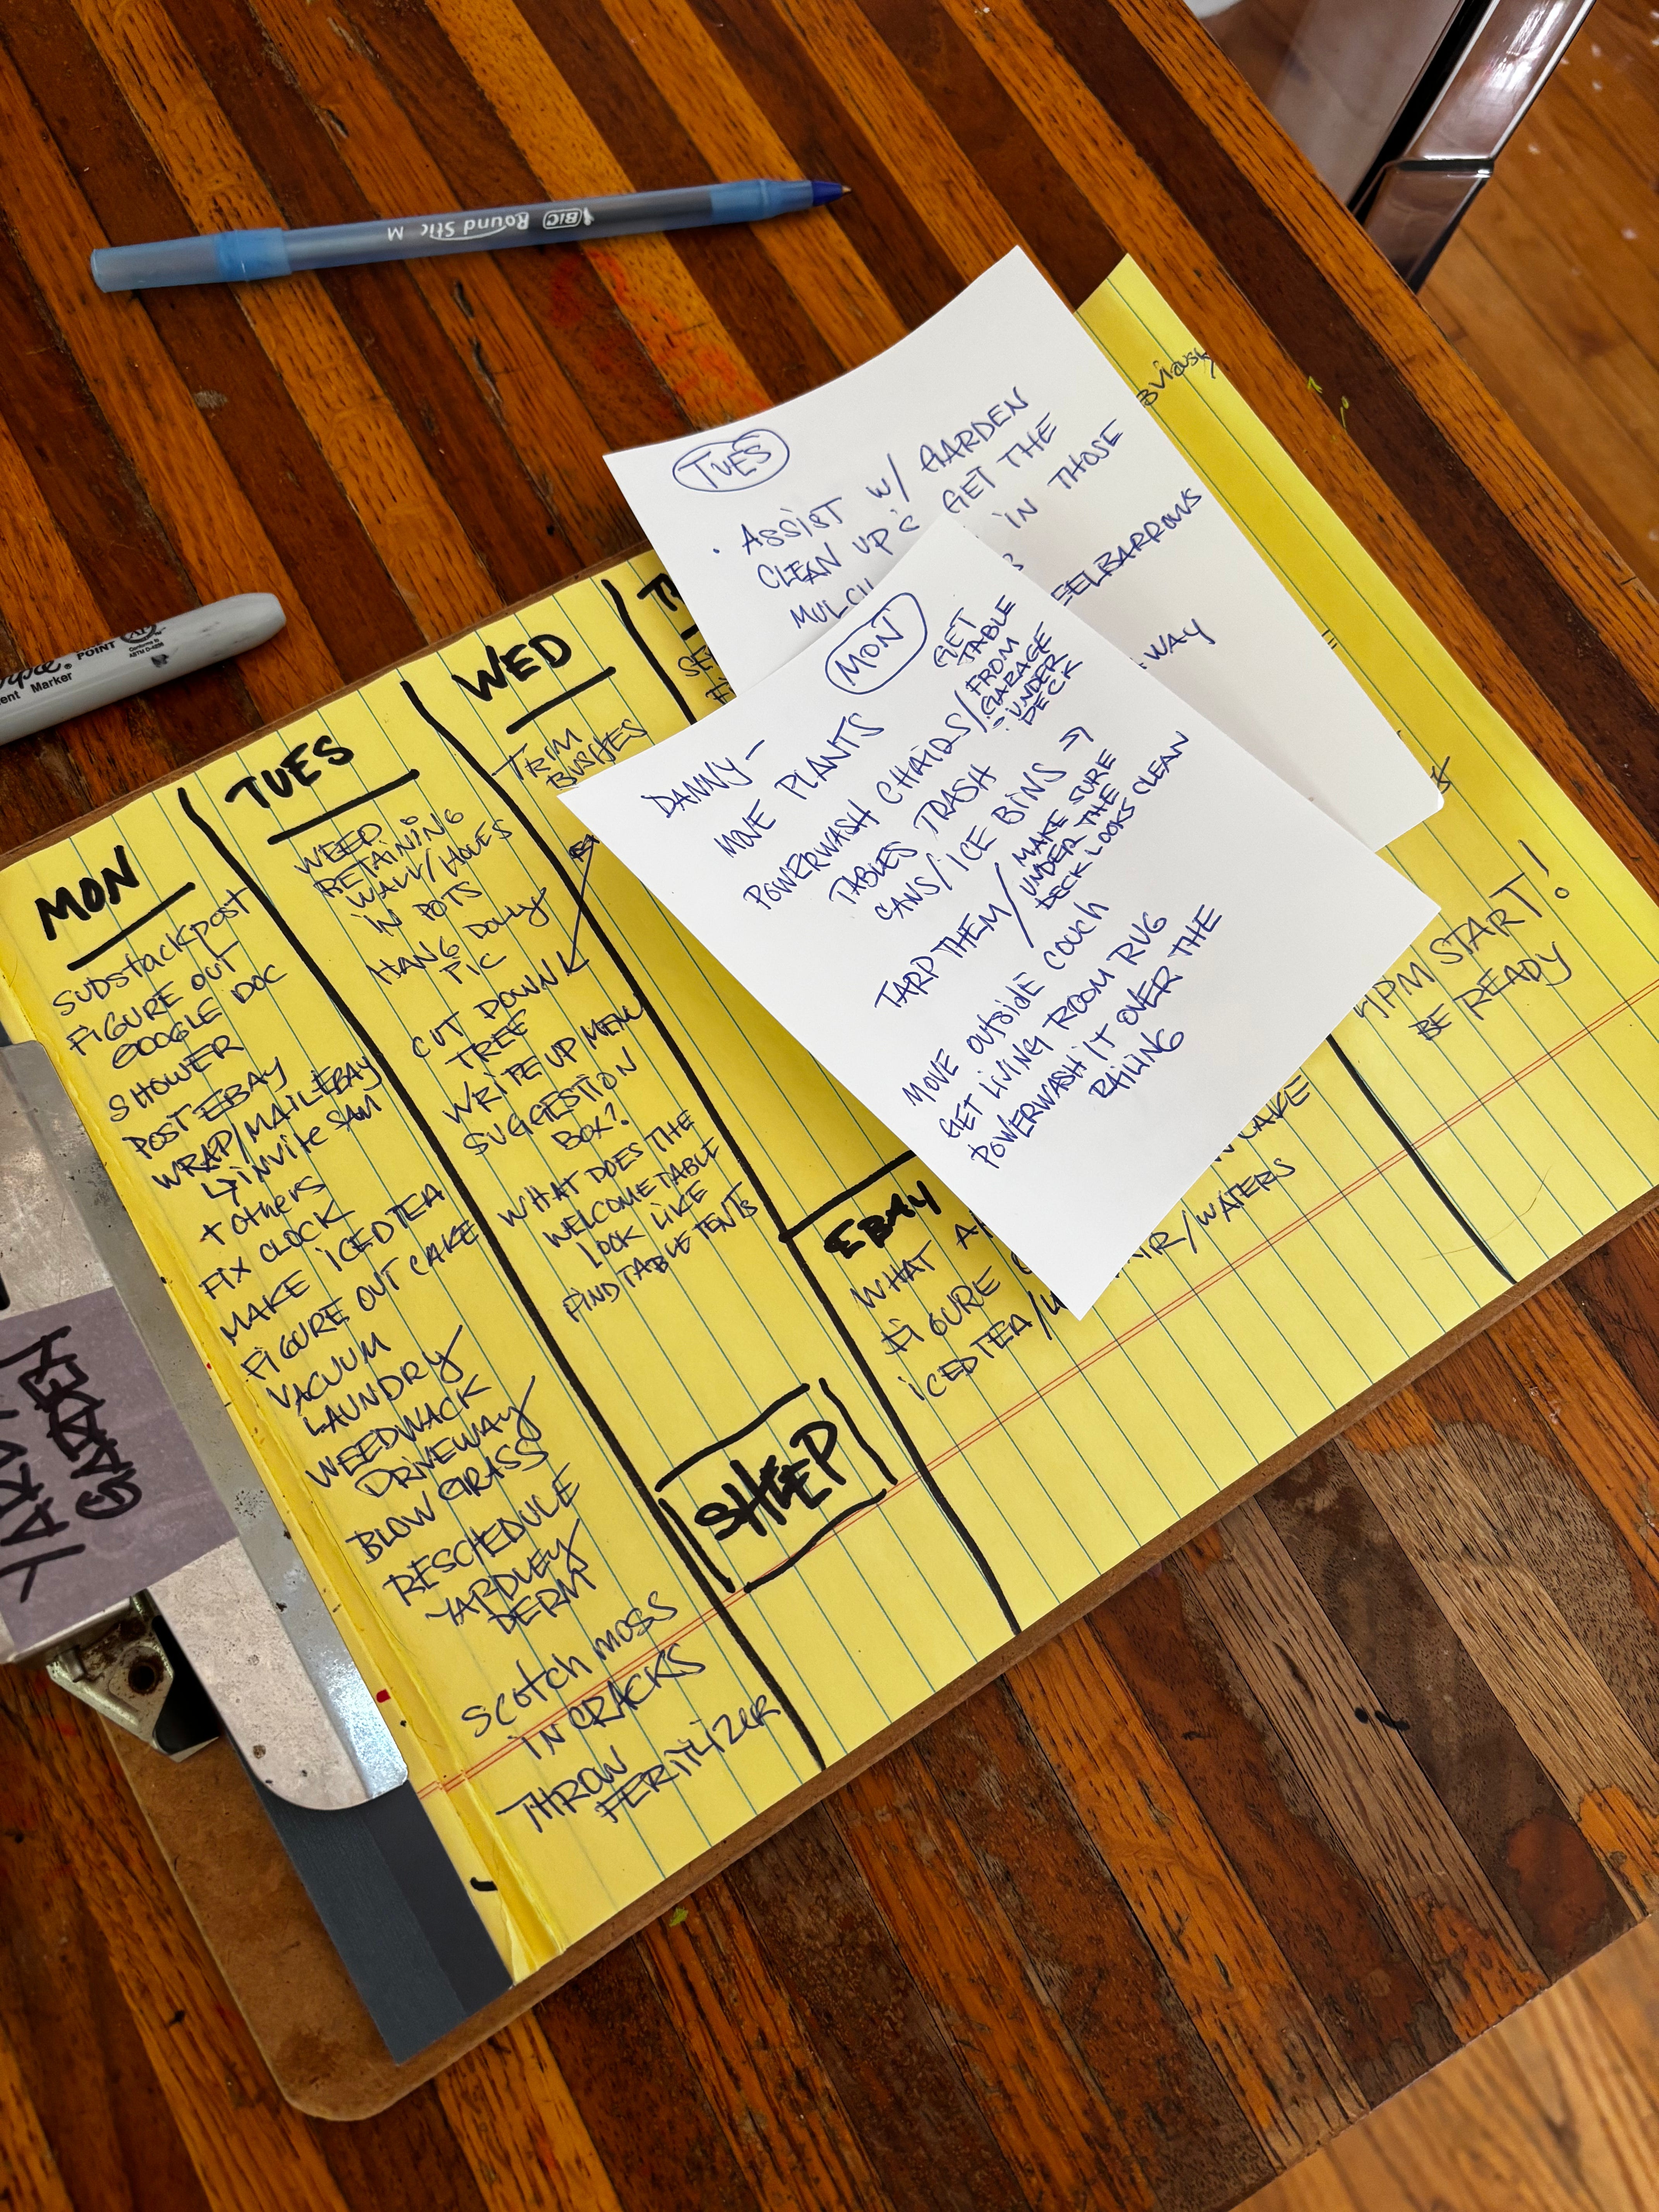 BIC Round Stic M
POINT
ent Marker
YARDLEY
GARDEN
MON
SUBSTACK POST
FIGURE OUT
GOOGLE DOC
SHOWER
POST EBAY
WRAP/MAIL EBAY
↳ INVITE SAM
+ OTHERS
FIX CLOCK
MAKE ICED TEA
FIGURE OUT CAKE
VACUUM
LAUNDRY
WEEDWACK
DRIVEWAY
BLOW GRASS
RESCHEDULE
YARDLEY
DERM
SCOTCH MOSS
IN CRACKS
THROW
FERITLIZER
TUES
WEED
RETAINING
WALL/HOLES
IN POTS
HANG DOLLY
PIC
CUT DOWN
TREE
WRITE UP MENU
SUGGESTION
BOX?
WHAT DOES THE
WELCOME TABLE
LOOK LIKE
FIND TABLE TENTS
SHEEP
WED
TRIM
BUSHES
EBAY
WHAT
FIGURE
ICED TEA/
/WATERS
CAKE
PM START!
BE READY
TUES
· ASSIST W/ GARDEN
CLEAN UP & GET THE
MULCH IN THOSE
EELBARROWS
WAY
MON
DANNY—
MOVE PLANTS
POWERWASH CHAIRS/
GET
TABLE
FROM
GARAGE
- UNDER
DECK
TABLES, TRASH
CANS/ICE BINS →
TARP THEM/
MAKE SURE
UNDER THE
DECK LOOKS CLEAN
MOVE OUTSIDE COUCH
GET LIVING ROOM RUG
POWERWASH IT OVER THE
RAILING